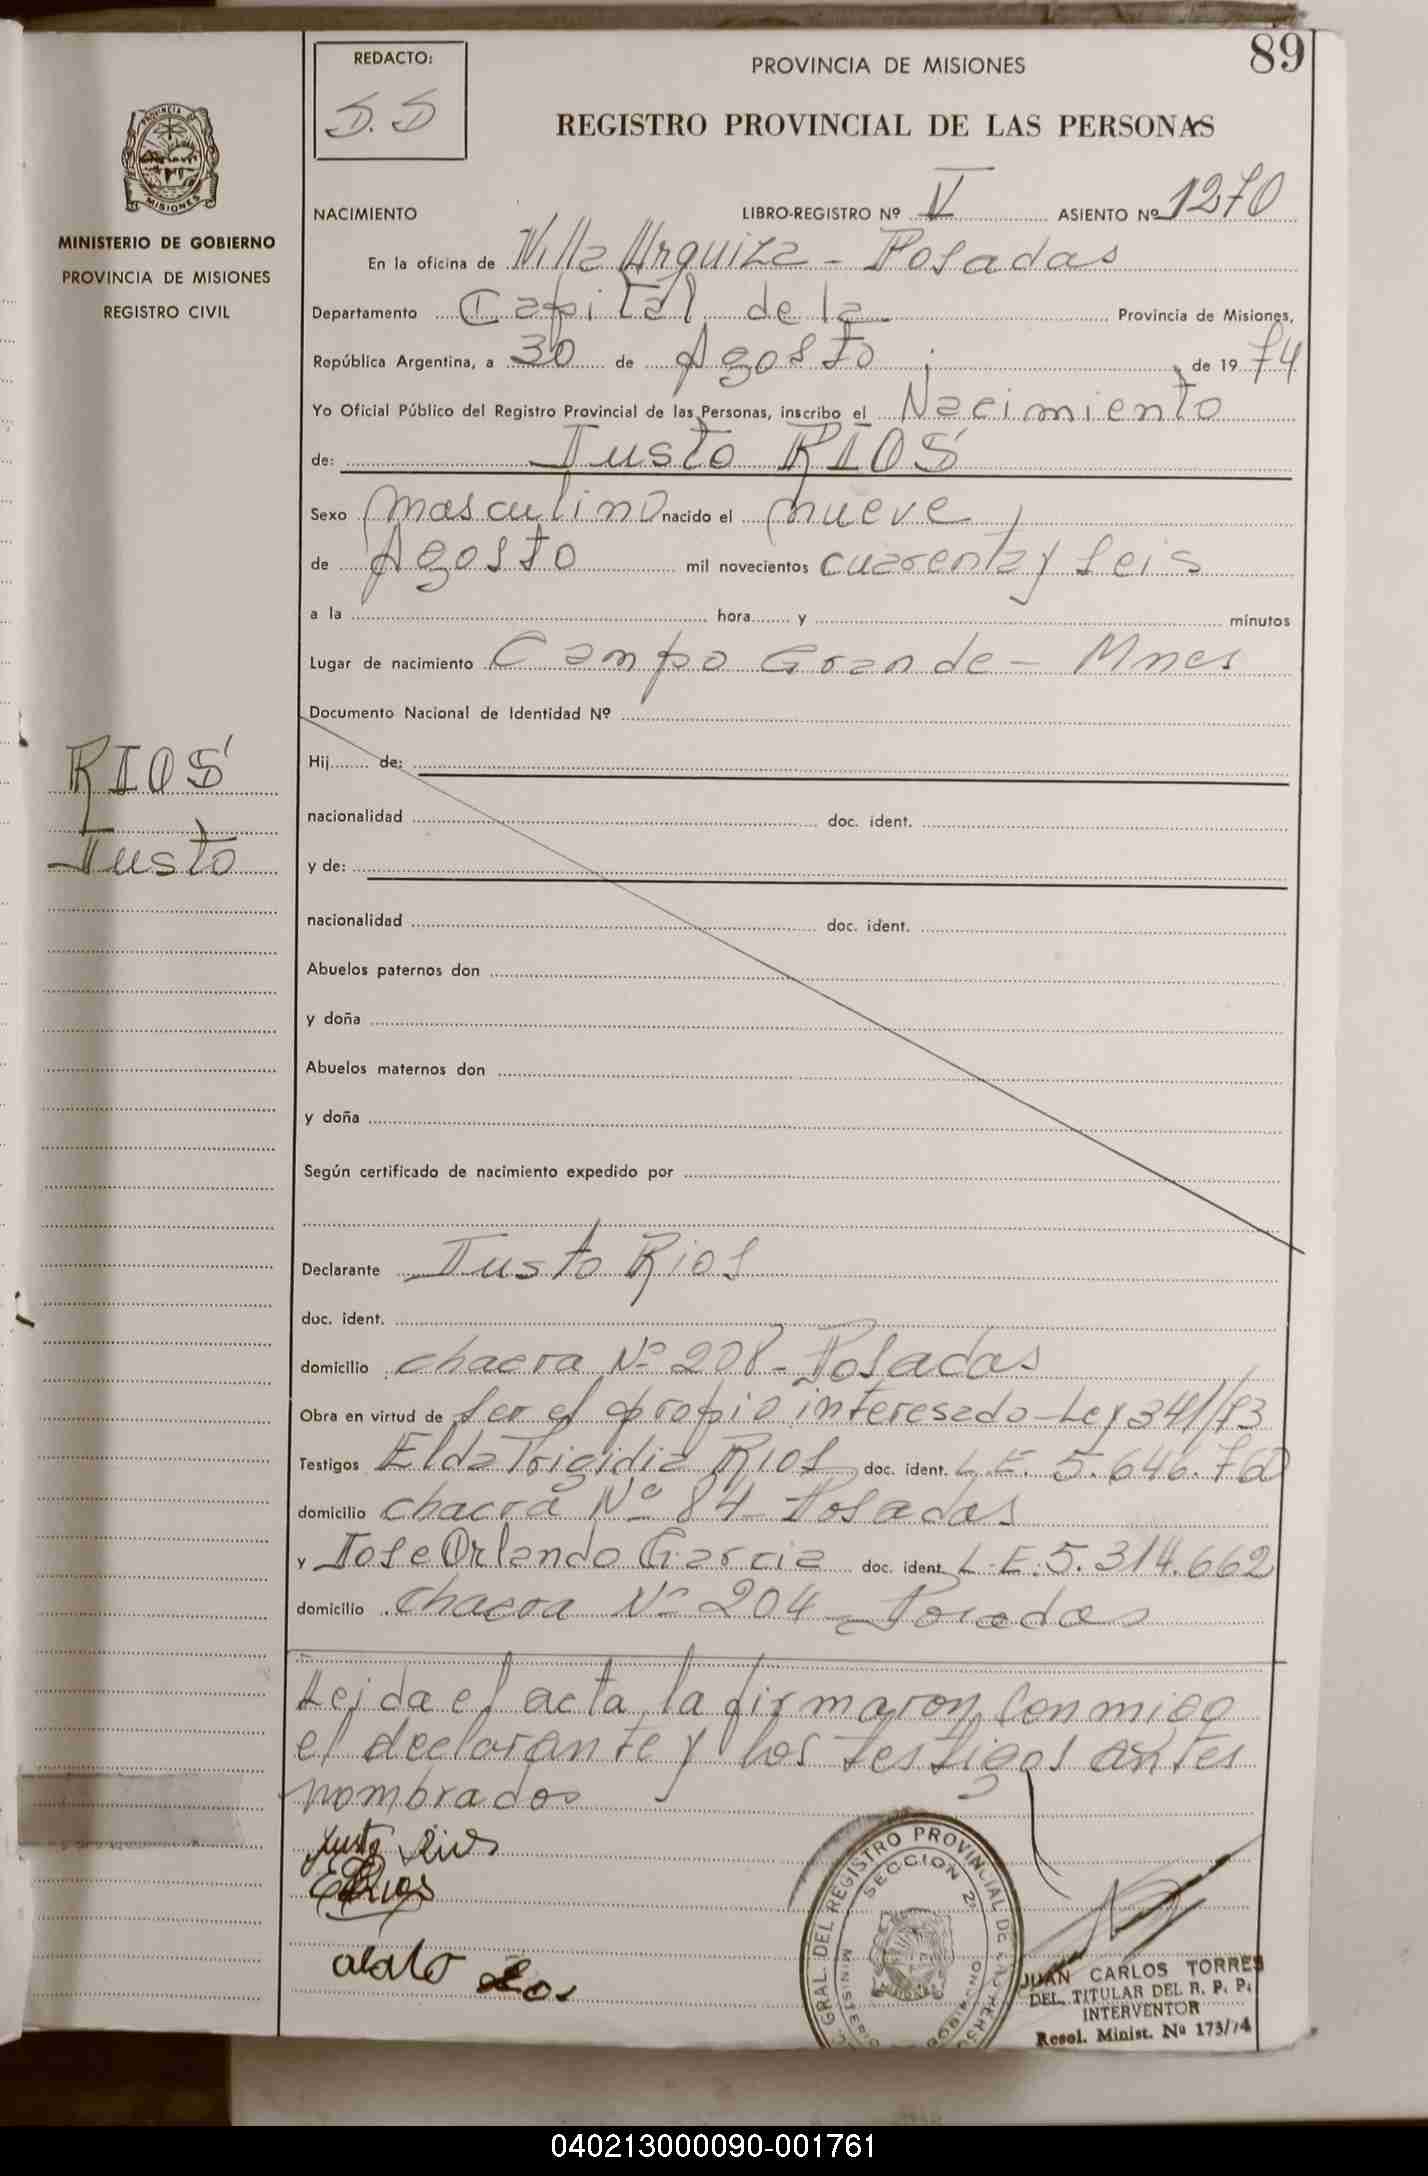 89
REDACTO:
S.S
PROVINCIA DE MISIONES
REGISTRO PROVINCIAL DE LAS PERSONAS
MISIONES
MINISTERIO DE GOBIERNO
PROVINCIA DE MISIONES
REGISTRO CIVIL
NACIMIENTO LIBRO-REGISTRO Nº V ASIENTO Nº 1270
En la oficina de Villa Urquiza - Posadas
Departamento Capital de la Provincia de Misiones,
República Argentina, a 30 de Agosto de 19 74
Yo Oficial Público del Registro Provincial de las Personas, inscribo el Nacimiento
de: Justo RIOS
Sexo masculino nacido el nueve
de Agosto mil novecientos cuarenta y seis
a la hora y minutos
Lugar de nacimiento Campo Grande - Mnes
Documento Nacional de Identidad Nº
RIOS
Justo
Hij de:
nacionalidad doc. ident.
y de:
nacionalidad doc. ident.
Abuelos paternos don
y doña
Abuelos maternos don
y doña
Según certificado de nacimiento expedido por
Declarante Justo Rios
doc. ident.
domicilio chacra Nº 208 - Posadas
Obra en virtud de ser el propio interesado - Ley 341/73
Testigos Elda Brigidia RIOS doc. ident. L.E. 5.646.760
domicilio chacra Nº 84 - Posadas
y Jose Orlando Garcia doc. ident. L.E. 5.314.662
domicilio chacra Nº 204 - Posadas
Leida el acta, la firmaron conmigo
el declarante y los testigos antes
nombrados
Justo Rios
ERios
GRAL. DEL REGISTRO PROVINCIAL DE LAS PERSO
SECCION 2ª
MINISTERIO
JUAN CARLOS TORRES
DEL. TITULAR DEL R. P. P.
INTERVENTOR
Resol. Minist. Nº 173/74
040213000090-001761